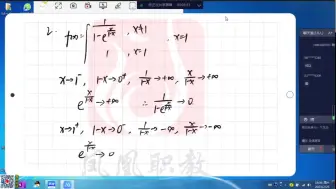 2. f(x) = { 1/(1-e^(x/(1-x))), x≠1
1, x=1 , x=1
x→1⁻, 1-x→0⁺, 1/(1-x)→+∞, x/(1-x)→+∞
e^(x/(1-x))→+∞ ∴ 1/(1-e^(x/(1-x)))→0
x→1⁺, 1-x→0⁻, 1/(1-x)→-∞, x/(1-x)→-∞
e^(x/(1-x))→0
凤凰职教